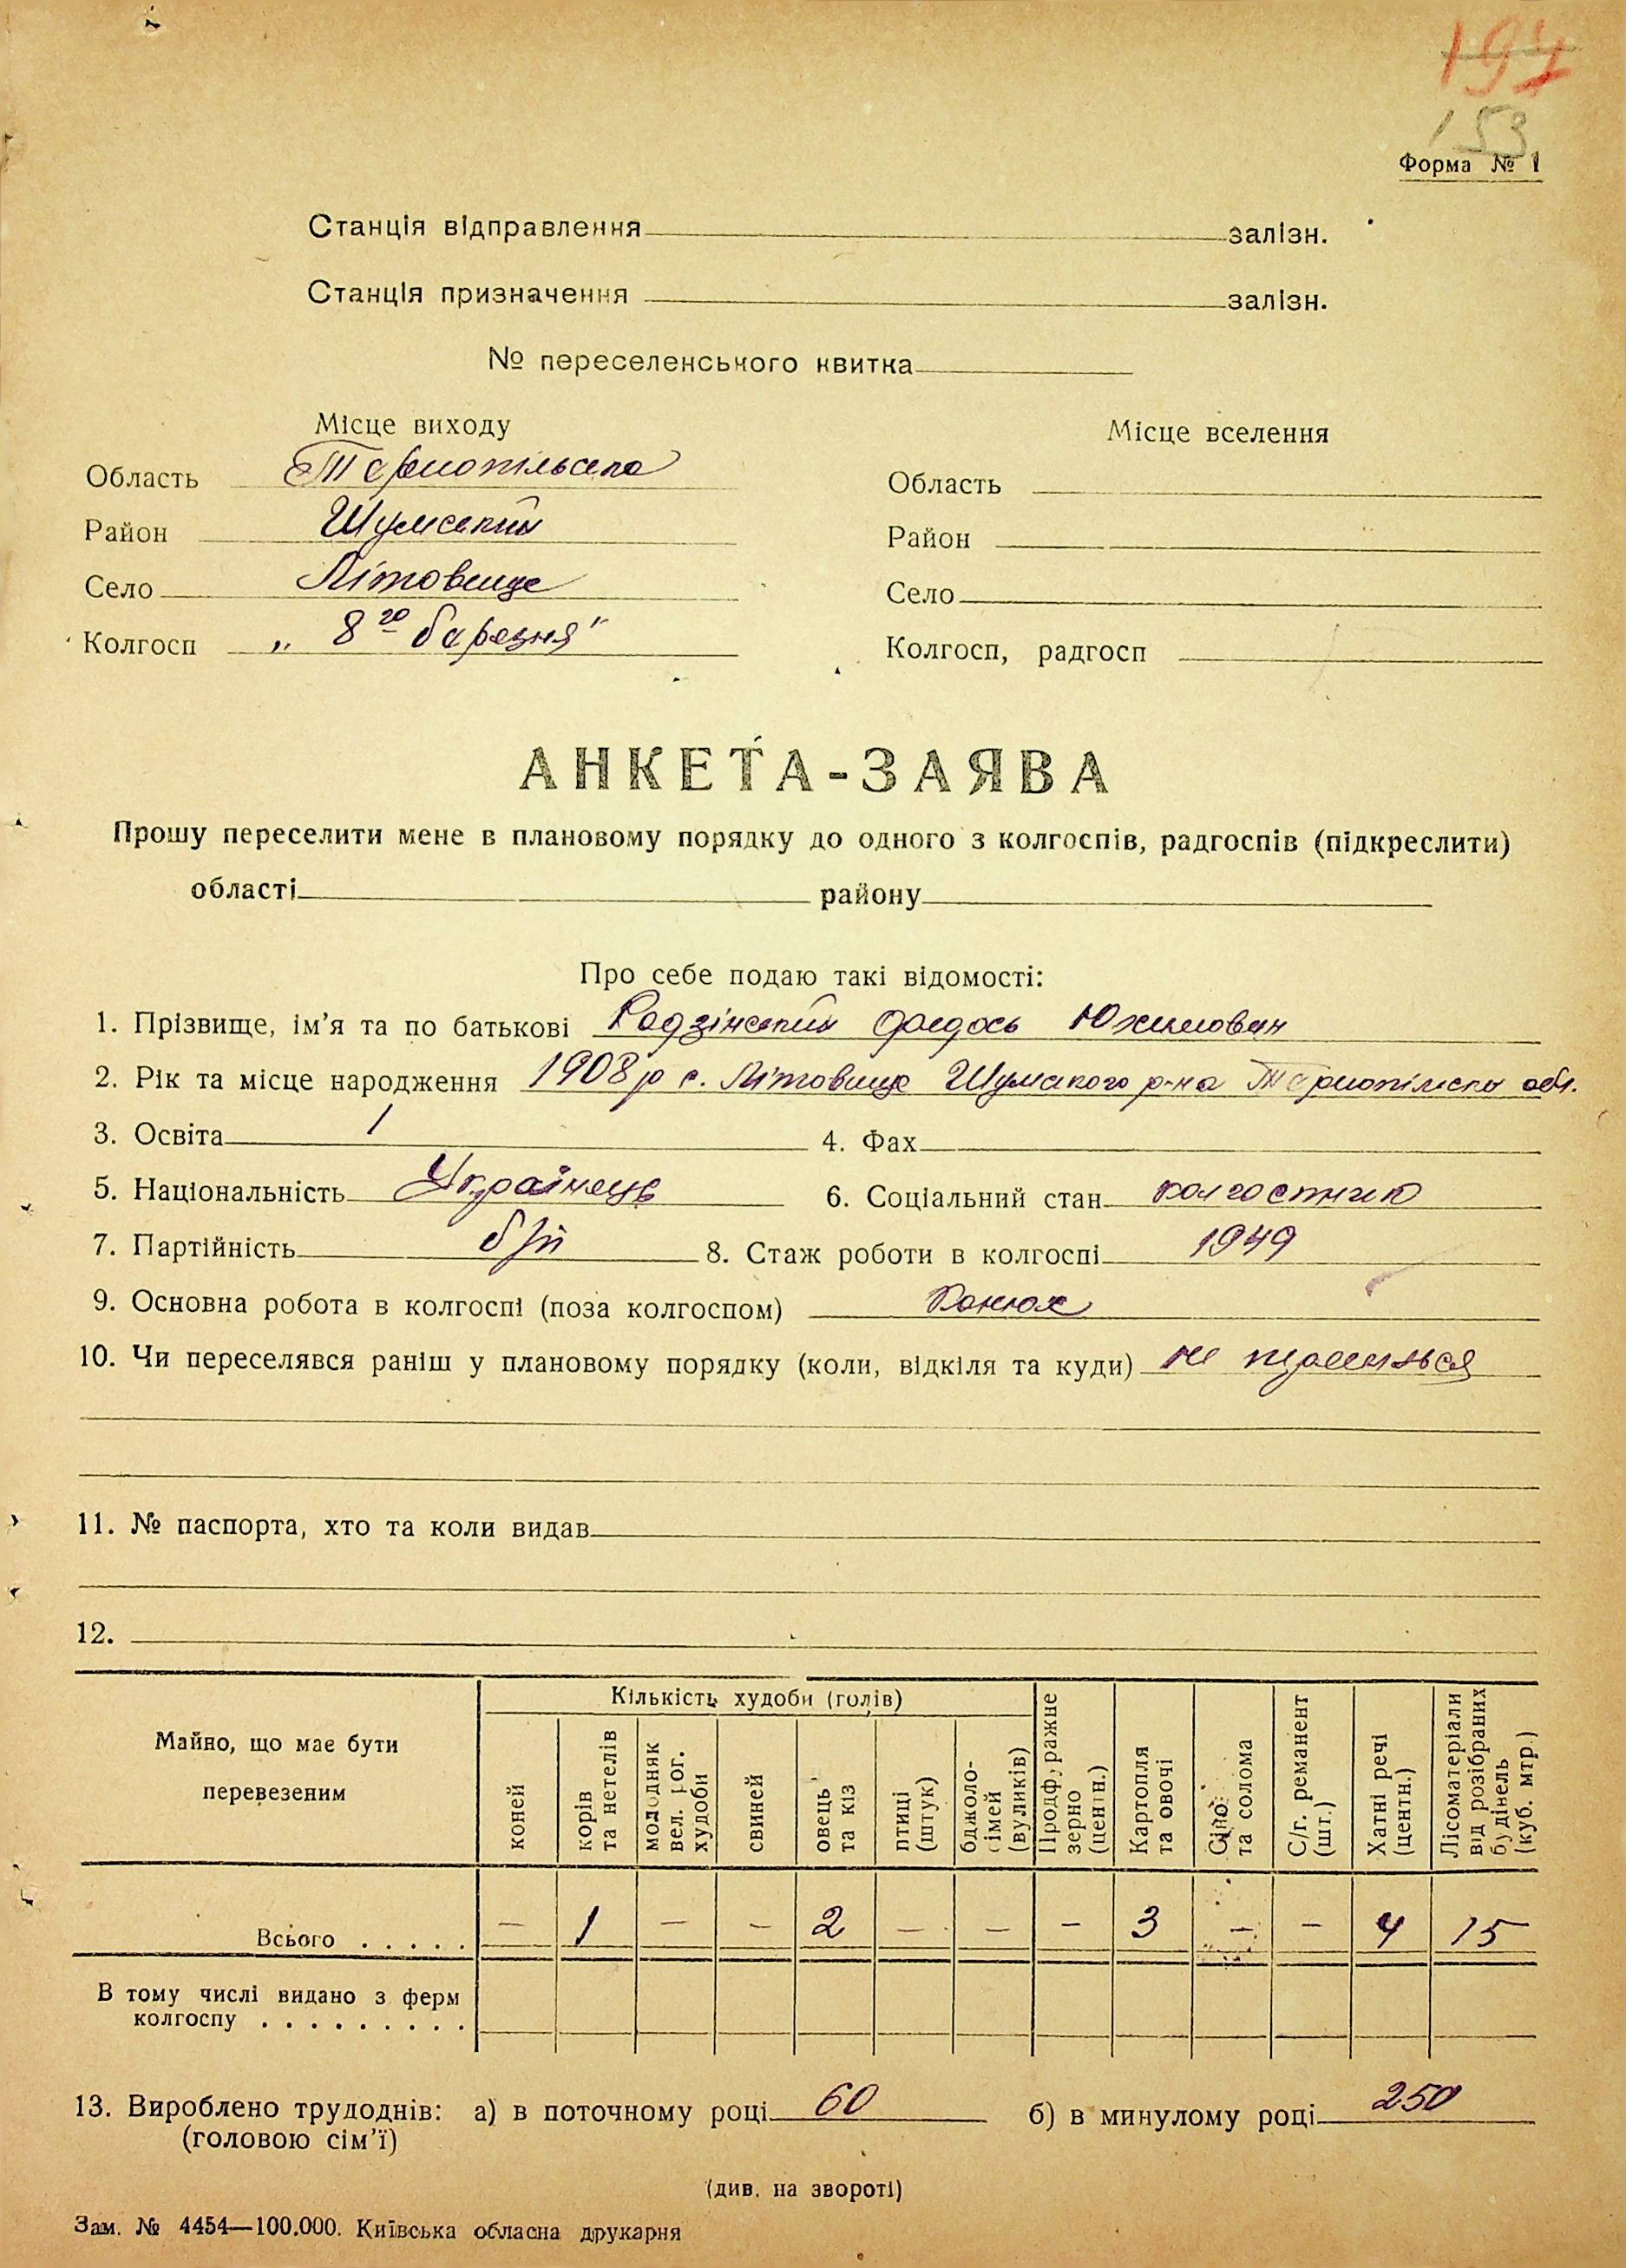 197
153
Форма № 1
Станція відправлення залізн.
Станція призначення залізн.
№ переселенського квитка
Місце виходу
Місце вселення
Область Тернопільська
Область
Район Шумський
Район
Село Літовище
Село
Колгосп „ 8го березня"
Колгосп, радгосп
АНКЕТА-ЗАЯВА
Прошу переселити мене в плановому порядку до одного з колгоспів, радгоспів (підкреслити)
області району
Про себе подаю такі відомості:
1. Прізвище, ім'я та по батькові Радзінський Федось Юхимович
2. Рік та місце народження 1908 р с. Літовище Шумського р-на обл.
3. Освіта 1 4. Фах
5. Національність Українець 6. Соціальний стан колгоспник
7. Партійність б/п 8. Стаж роботи в колгоспі 1949
9. Основна робота в колгоспі (поза колгоспом) Конюх
10. Чи переселявся раніш у плановому порядку (коли, відкіля та куди) не
11. № паспорта, хто та коли видав
12.
Майно, що має бути
перевезеним
Кількість худоби (голів)
коней
корів
та нетелів
молодняк
вел. рог.
худоби
свиней
овець
та кіз
птиці
(штук)
бджоло-
сімей
(вуликів)
Продфуражне
зерно
(центн.)
Картопля
та овочі
Сіно
та солома
С/г. реманент
(шт.)
Хатні речі
(центн.)
Лісоматеріали
від розібраних
будівель
(куб. мтр.)
Всього . . . . . — 1 — — 2 — — — 3 — — 4 15
В тому числі видано з ферм
колгоспу . . . . . . . . .
13. Вироблено трудоднів: а) в поточному році 60 б) в минулому році 250
(головою сім'ї)
(див. на звороті)
Зам. № 4454—100.000. Київська обласна друкарня